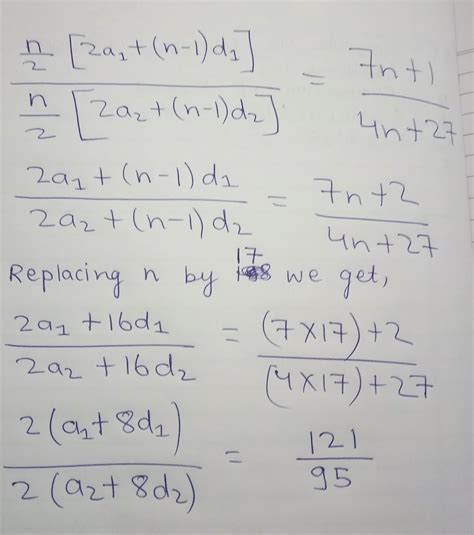 n/2 [2a₁+(n-1)d₁] / n/2 [2a₂+(n-1)d₂] = 7n+1 / 4n+27
2a₁+(n-1)d₁ / 2a₂+(n-1)d₂ = 7n+2 / 4n+27
17
Replacing n by we get,
2a₁+16d₁ / 2a₂+16d₂ = (7×17)+2 / (4×17)+27
2(a₁+8d₁) / 2(a₂+8d₂) = 121 / 95